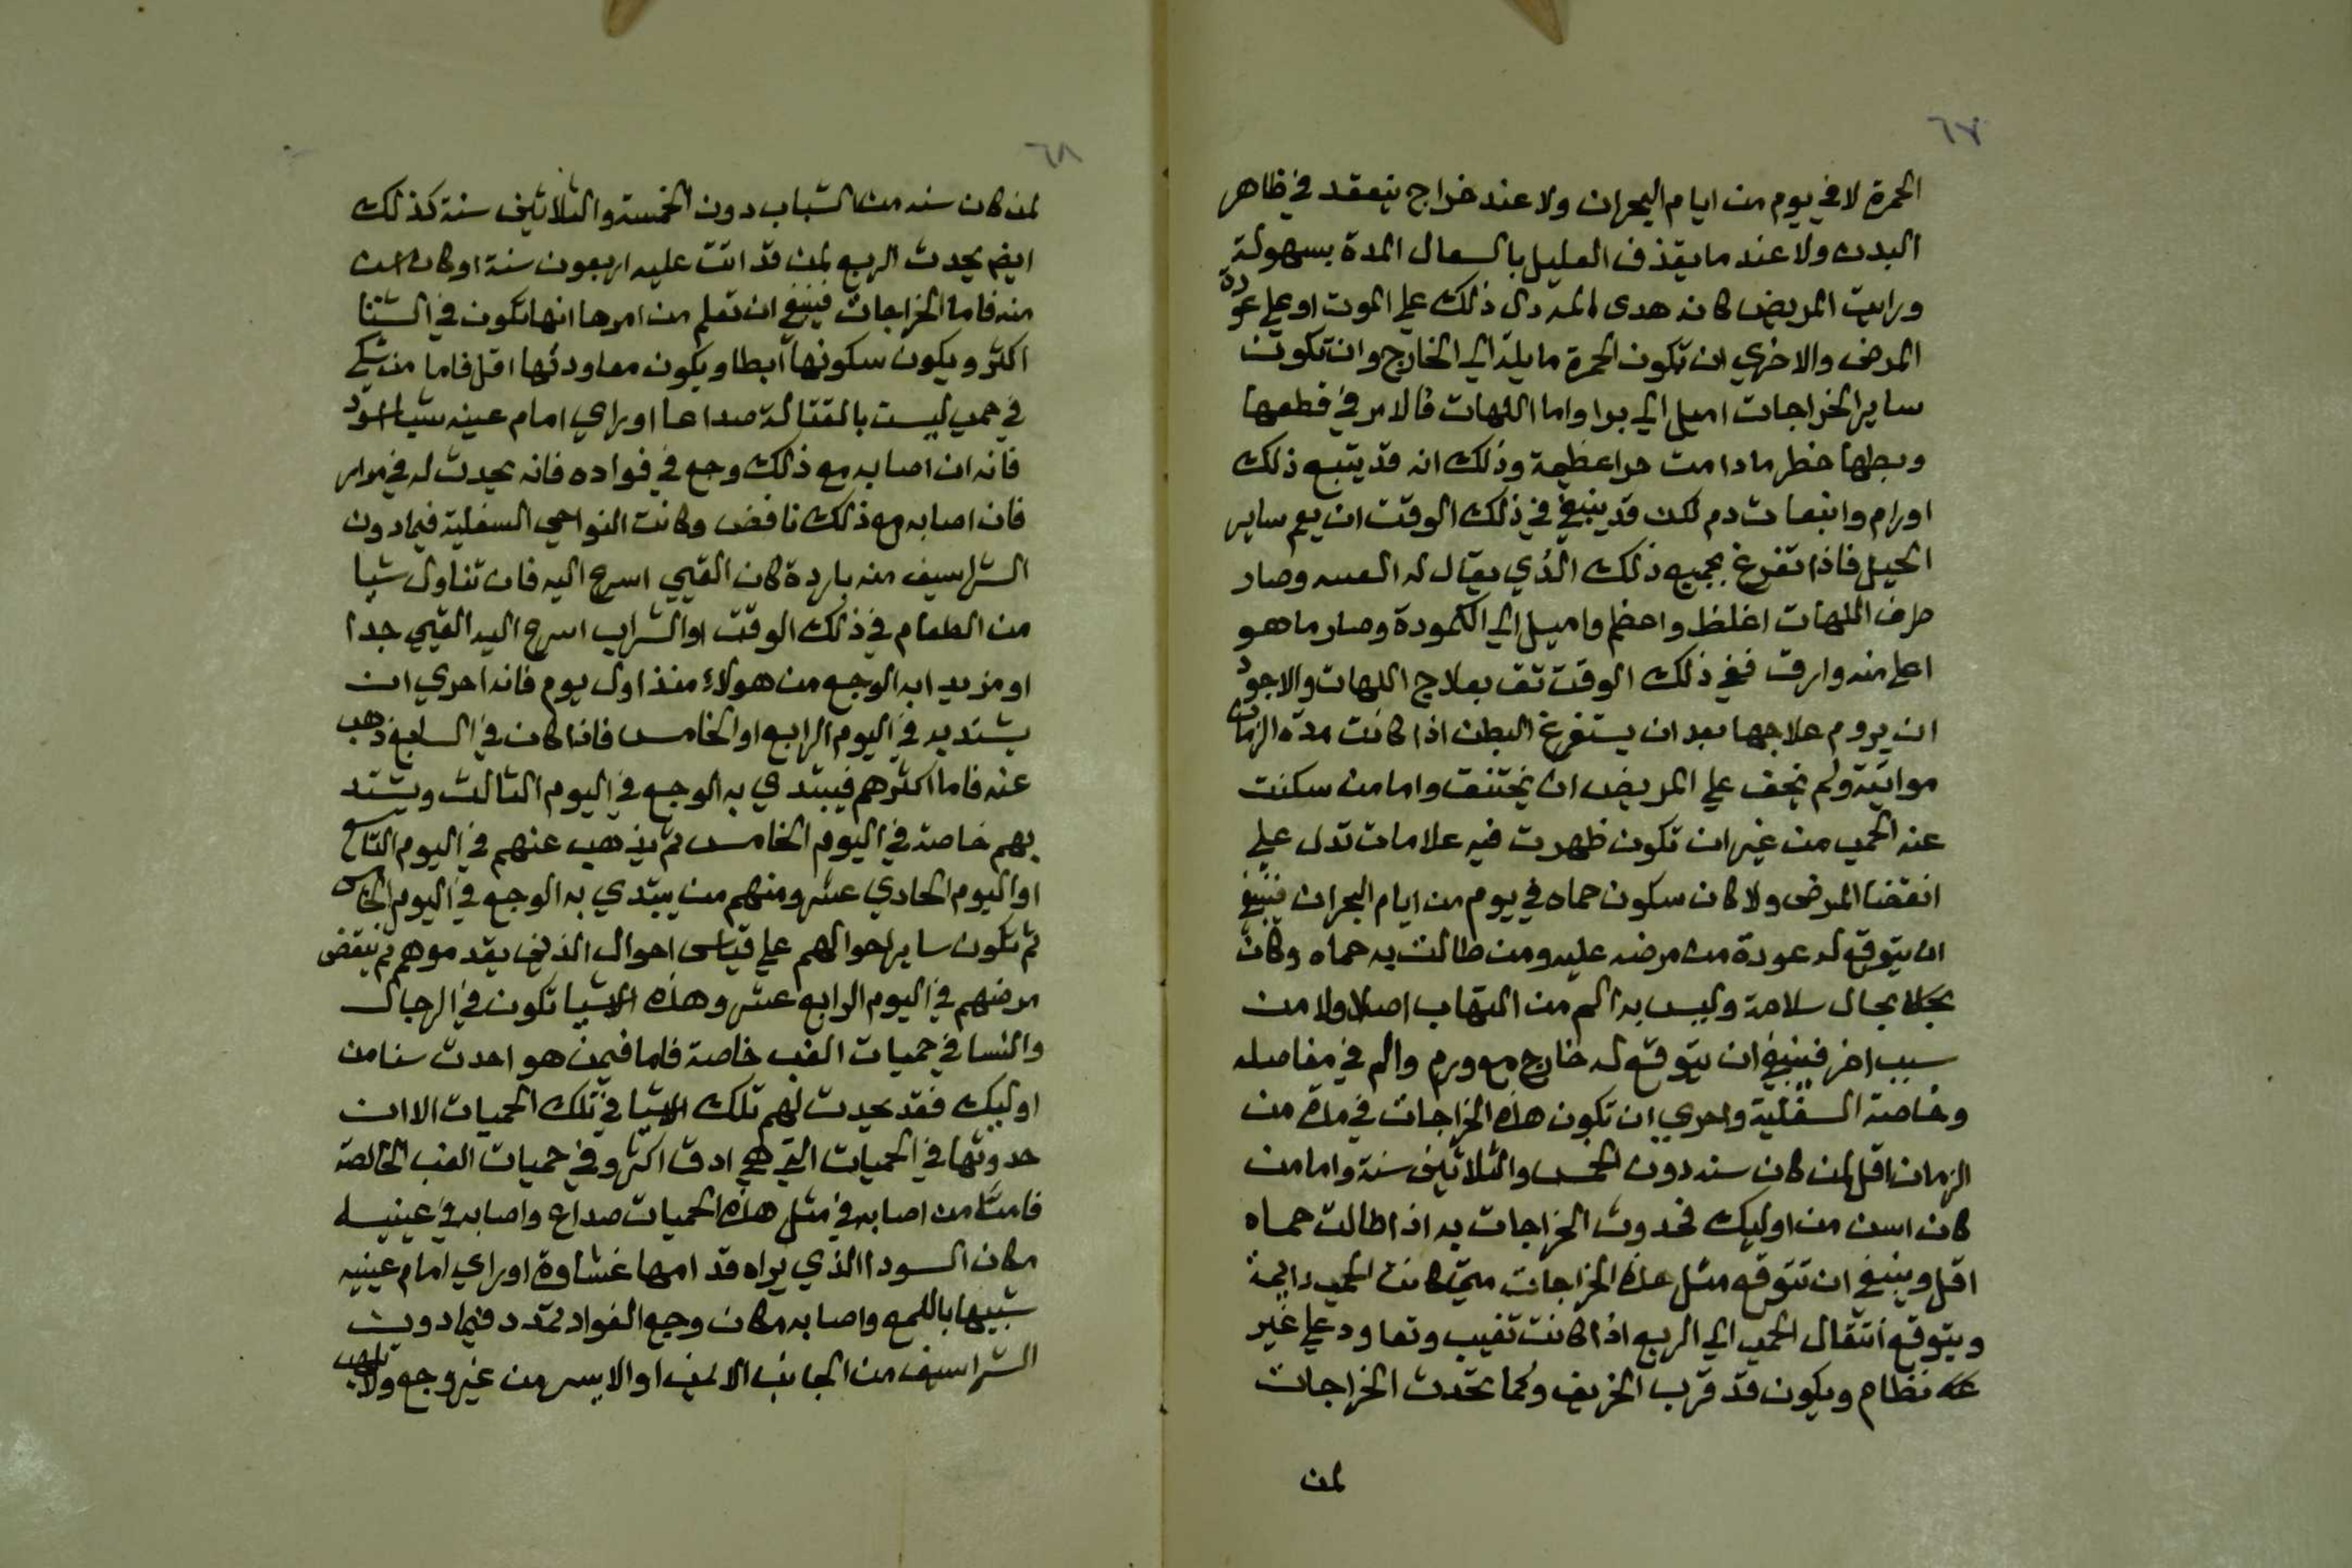 ٦٧
الحمرة لا في يوم من ايام البحران ولا عند خراج ينعقد في ظاهر
البدن ولا عند ما يقذف العليل بالسعال المدة بسهولة
ورايت المريض كانه هدى دل ذلك علي الموت او علي عودة
المرض والاخري ان تكون الحمرة مايلة الي الخارج وان تكون
ساير الخراجات اميل الي بوا واما اللهات فالامر في قطعها
وبطها خطر ما دامت حرا عظيمة وذلك انه قد يتبع ذلك
اورام وانبعاث دم لكن قد ينبغي في ذلك الوقت ان يعم ساير
الحيل فاذا تفرغ بجميع ذلك الذي يقال له وصار
طرف اللهات اغلظ واعظم واميل الي الكمودة وصار ما هو
اعلا منه وارق ففي ذلك الوقت تق بعلاج اللهات والاجود
ان يروم علاجها بعد ان يستفرغ البطن اذا كانت مدة الزمان
مواتية ولم يخف علي المريض ان يختنق واما من سكنت
عنه الحمي من غير ان تكون ظهرت فيه علامات تدل علي
انقضا المرض ولا كان سكون حماه في يوم من ايام البحران فينبغي
ان يتوقع له عودة من مرضه عليه ومن طالت به حماه وكان
بحال سلامة وليس به الم من التهاب اصلا ولا من
سبب اخر فينبغي ان يتوقع له خارج مع ورم والم في مفاصله
وخاصة السفلية واحري ان تكون هذه الخراجات في مدة من
الزمان اقل لمن كان سنه دون الخمس والثلاثين سنة واما من
كان اسن من اوليك فحدوث الخراجات به اذا طالت حماه
اقل وينبغي ان تتوقع مثل هذه الخراجات متي كانت الحمي دايمة
ويتوقع انتقال الحمي الي الربع اذا كانت تغيب وتعاود علي غير
نظام ويكون قد قرب الخريف وكما تحدث الخراجات
لمن
٦٨
لمن كان سنه من الشباب دون الخمسة والثلاثين سنة كذلك
ايضم يحدث الربع لمن قد اتت عليه اربعون سنة او كان اسن
منه فاما الخراجات فينبغي ان تعلم من امرها انها تكون في الشتا
اكثر ويكون سكونها ابطا ويكون معاودتها اقل فاما من شكي
في حمي ليست بالقتالة صداعا او راي امام عينه شيا اسود
فانه ان اصابه مع ذلك وجع في فواده فانه يحدث له في مرار
فان اصابه مع ذلك نافض وكانت النواحي السفلية فيما دون
الشراسيف منه باردة كان القيي اسرع اليه فان تناول شيا
من الطعام في ذلك الوقت او الشراب اسرع اليه القيي جدا
او من بدا به الوجع من هولاء منذ اول يوم فانه احري ان
يشتد به في اليوم الرابع او الخامس فاذا كان في السابع ذهب
عنه فاما اكثرهم فيبتدي به الوجع في اليوم الثالث ويشتد
بهم خاصة في اليوم الخامس ثم يذهب عنهم في اليوم التاسع
او اليوم الحادي عشر ومنهم من يبتدي به الوجع في اليوم الخامس
ثم تكون ساير احوالهم علي قياس احوال الذين يقدموهم ثم ينقض
مرضهم في اليوم الرابع عشر وهذه الاشيا تكون في الرجال
والنسا في حميات الغب خاصة فاما فيمن هو احدث سنا من
اوليك فقد يحدث لهم تلك الاشيا في تلك الحميات الا ان
حدوثها في الحميات التي هي ادق اكثر وفي حميات الغب الخالصة
فاما من اصابه في مثل هذه الحميات صداع واصابه في عينيه
مكان السودا الذي يراه قدامها غشاوة او راي امام عينيه
شبيها باللمع واصابه مكان وجع الفواد تمدد فيما دون
الشراسيف من الجانب الايمن او الايسر من غير وجع ولا تلهب